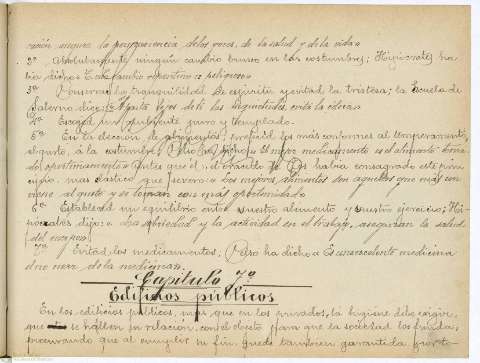 ración asegura la permanencia de los goces, de la salud y de la vida»
2º Absolutamente ningún cambio brusco en las costumbres; Hipócrates ha-
bía dicho: Todo cambio repentino es peligroso»
3º Conservad la tranquilidad de espíritu y evitad la tristeza; la Escuela de
Salerno dice: «Aparta lejos de ti las inquietudes, evita la cólera»
4º Escoged un ambiente puro y templado.
5º En la elección de alimentos, preferid los más conformes al temperamento,
al gusto, á la costumbre; Celso dijo: El mejor medicamento es el alimento toma-
do oportunamente» Antes que él, el oráculo de Cos había consagrado este prin-
cipio, más elástico que severo: «Los mejores alimentos son aquellos que más con-
viene al gusto y se toman con más oportunidad»
6º Estableced un equilibrio entre vuestro alimento y vuestro ejercicio; Hi-
pócrates dijo: «La sobriedad y la actividad en el trabajo, aseguran la salud
del cuerpo»
7º Evitad los medicamentos; ha dicho «Es una excelente medicina
no usar de la medicina».
Capítulo 7º
Edificios públicos
En los edificios públicos, más que en los privados, la higiene debe exigir,
que se hallen en relación, con el objeto para que la sociedad los funda,
procurando que al cumplir su fin, quede también garantida pronto-